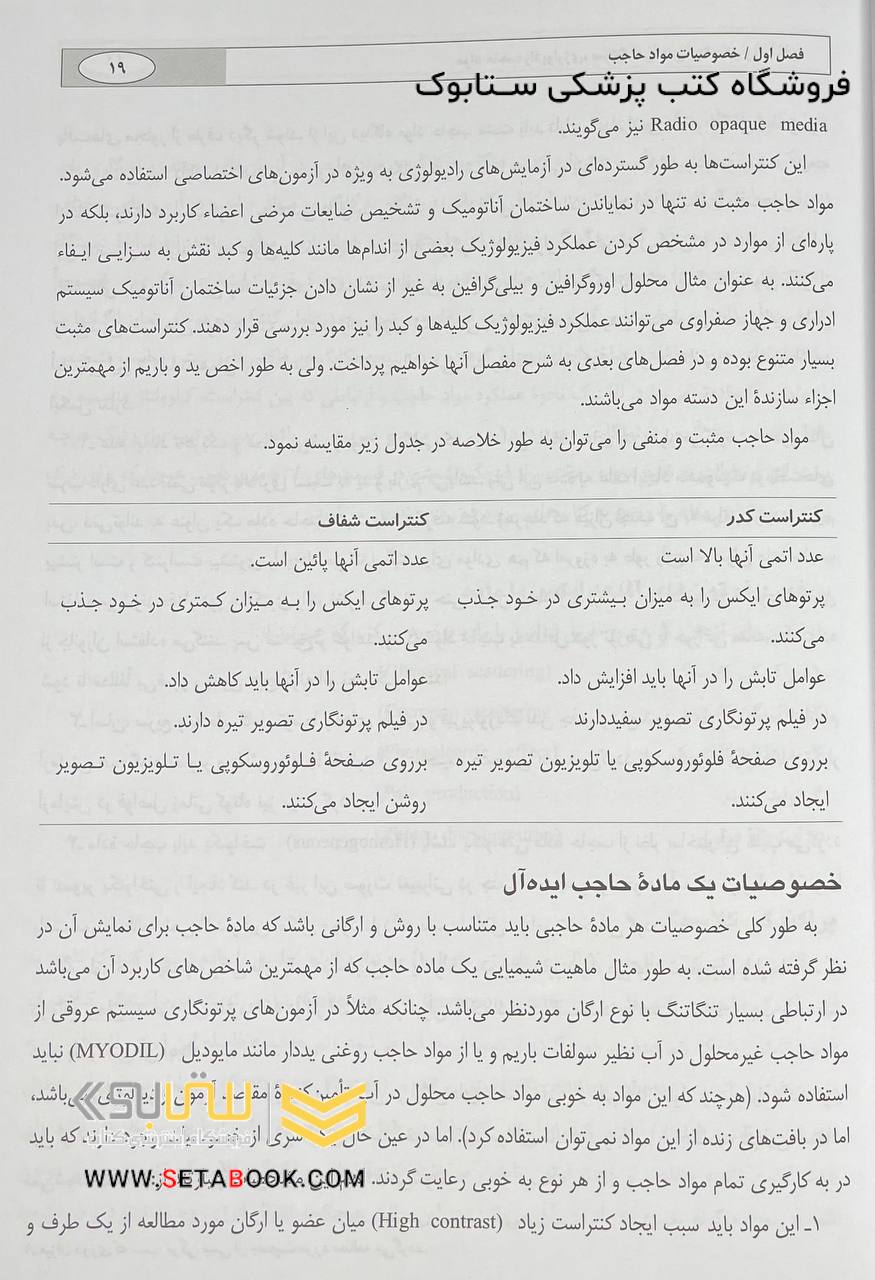 فصل اول / خصوصیات مواد حاجب
۱۹
فروشگاه کتب پزشکی ستابوک
Radio opaque media نیز می‌گویند.
این کنتراست‌ها به طور گسترده‌ای در آزمایش‌های رادیولوژی به ویژه در آزمون‌های اختصاصی استفاده می‌شود.
مواد حاجب مثبت نه تنها در نمایاندن ساختمان آناتومیک و تشخیص ضایعات مرضی اعضاء کاربرد دارند، بلکه در
پاره‌ای از موارد در مشخص کردن عملکرد فیزیولوژیک بعضی از اندام‌ها مانند کلیه‌ها و کبد نقش به سزایی ایفاء
می‌کنند. به عنوان مثال محلول اوروگرافین و بیلی‌گرافین به غیر از نشان دادن جزئیات ساختمان آناتومیک سیستم
ادراری و جهاز صفراوی می‌توانند عملکرد فیزیولوژیک کلیه‌ها و کبد را نیز مورد بررسی قرار دهند. کنتراست‌های مثبت
بسیار متنوع بوده و در فصل‌های بعدی به شرح مفصل آنها خواهیم پرداخت. ولی به طور اخص ید و باریم از مهمترین
اجزاء سازندهٔ این دسته مواد می‌باشند.
مواد حاجب مثبت و منفی را می‌توان به طور خلاصه در جدول زیر مقایسه نمود.
کنتراست کدر
کنتراست شفاف
عدد اتمی آنها بالا است
عدد اتمی آنها پائین است.
پرتوهای ایکس را به میزان بیشتری در خود جذب
می‌کنند.
پرتوهای ایکس را به میزان کمتری در خود جذب
می‌کنند.
عوامل تابش را در آنها باید افزایش داد.
عوامل تابش را در آنها باید کاهش داد.
در فیلم پرتونگاری تصویر سفیددارند
در فیلم پرتونگاری تصویر تیره دارند.
برروی صفحهٔ فلوئوروسکوپی یا تلویزیون تصویر تیره
ایجاد می‌کنند.
برروی صفحهٔ فلوئوروسکوپی یا تلویزیون تصویر
روشن ایجاد می‌کنند.
خصوصیات یک مادهٔ حاجب ایده‌آل
به طور کلی خصوصیات هر مادهٔ حاجبی باید متناسب با روش و ارگانی باشد که مادهٔ حاجب برای نمایش آن در
نظر گرفته شده است. به طور مثال ماهیت شیمیایی یک ماده حاجب که از مهمترین شاخص‌های کاربرد آن می‌باشد
در ارتباطی بسیار تنگاتنگ با نوع ارگان موردنظر می‌باشد. چنانکه مثلاً در آزمون‌های پرتونگاری سیستم عروقی از
مواد حاجب غیرمحلول در آب نظیر سولفات باریم و یا از مواد حاجب روغنی یددار مانند مایودیل (MYODIL) نباید
استفاده شود. (هرچند که این مواد به خوبی مواد حاجب محلول در آب تأمین کنندهٔ مقاصد آزمون رادیولوژی می‌باشد،
اما در بافت‌های زنده از این مواد نمی‌توان استفاده کرد). اما در عین حال یک سری از که باید
در به کارگیری تمام مواد حاجب و از هر نوع به خوبی رعایت گردند.
ستابوک
WWW.SETABOOK.COM
۱ـ این مواد باید سبب ایجاد کنتراست زیاد (High contrast) میان عضو یا ارگان مورد مطالعه از یک طرف و